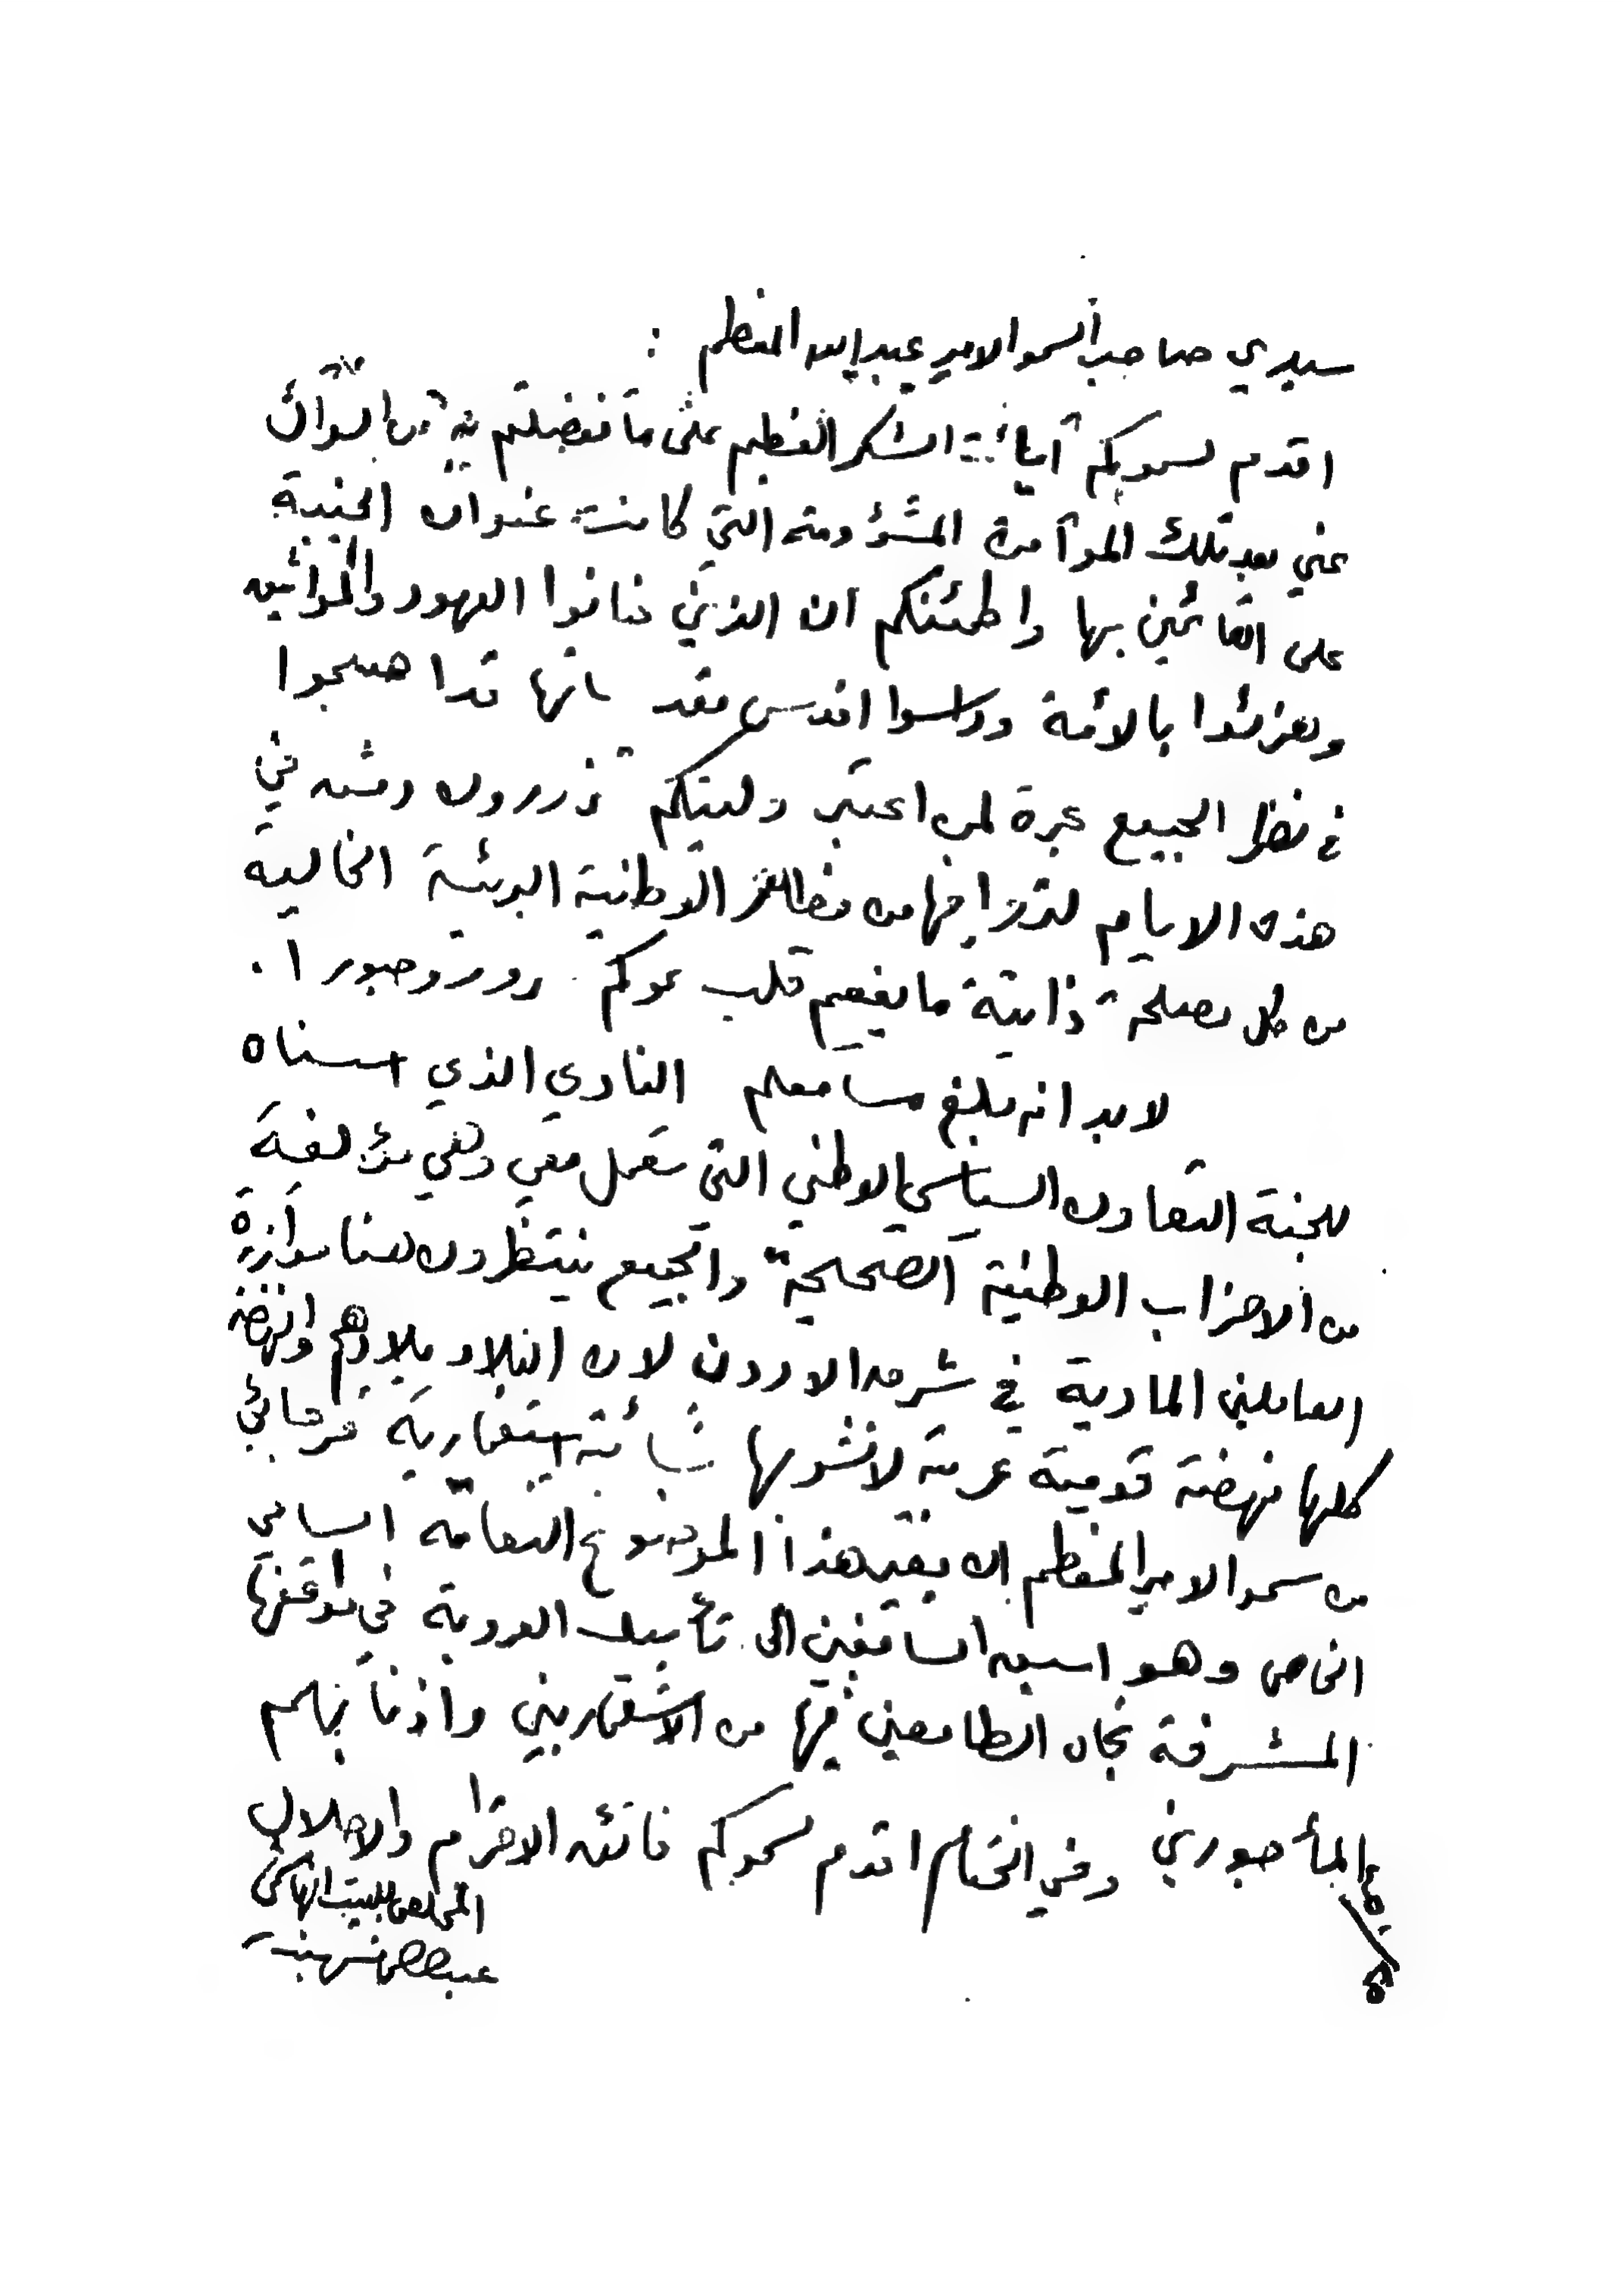 سيدي صاحب السمو الامير عبدالله المعظم :
اقدم لسموكم آيات الشكر العظيم على ما تفضلتم به من السؤال
عني بعد تلك المؤآمرة المشؤومة التي كانت عنوان الخيبة
على القائمين بها واطمئنكم ان الذين خانوا العهود والمواثيق
بالأمة وداسوا اقدس اصبحوا
في نظر الجميع عبرة لمن اعتبر وليتكم تزورون دمشق في
هذه الايام لتروا فيها من مظاهر الوطنية البريئة الخالية
من كل مصلحة ذاتية ما يفعم قلب سموكم سرورا وحبورا .
لا بد انه بلغ مسامعكم النادي الذي اسسناه
للجنة التعاون السياسي الوطني التي تعمل معي وهي مؤلفة
من الاحزاب الوطنية الصحيحة والجميع ينتظرون هنا موآزرة
العاملين المادية في شرق الاردن لان البلاد بلادهم والنهضة
كلها نهضة قومية عربية لا تشوبها شائبة استعمارية فرجائي
من سمو الامير المعظم ان يعير هذا الموضوع التفاته السامي
الخاص وهو اسبق السابقين الى تأييد العروبة في مواقفها
المشرفة تجاه الطامعين فيها من الاستعماريين واذنابهم
المأجورين وفي الختام اقدم لسموكم فائق الاحترام والاجلال
المخلص للبيت الهاشمي
عبدالرحمن شهبندر